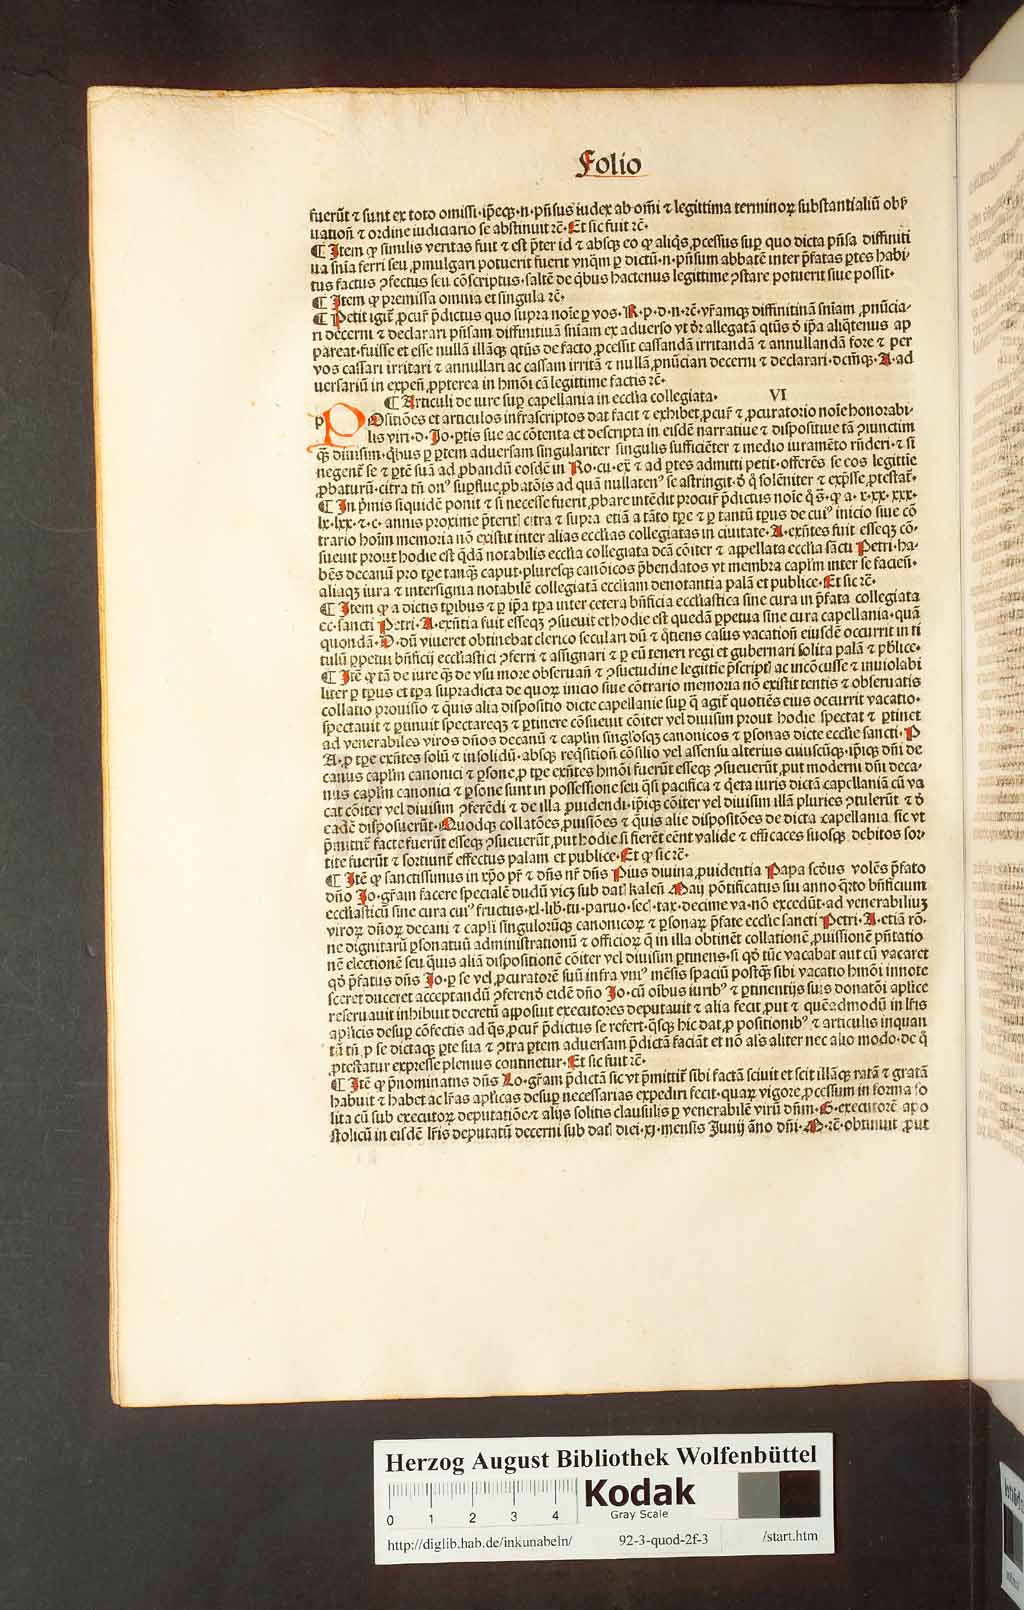 Folio
fuerūt ⁊ sunt ex toto omissi·ip̄eqꝫ·n·pn̄sus iudex ab om̄i ⁊ legittima terminoꝝ substantialiū obẜ
uatioñ ⁊ ordine iudiciario se abstinuit ⁊c̄·Et sic fuit ⁊c̄·
¶ Item ꝙ similis veritas fuit ⁊ est p̄ter id ⁊ absqꝫ eo ꝙ aliq̄s ꝓcessus suꝑ quo dicta pn̄sa diffiniti
ua sn̄ia ferri seu ꝓmulgari potuerit fuerit vnq̄m ꝑ dictū·n·pn̄sum abbatē inter p̄fatas ꝑtes habi-
tus factus ꝯfectus seu cōscriptus·saltē de q̄bus hactenus legittime ꝯstare potuerit siue possit·
¶ Item ꝙ p̄remissa omnia et singula ⁊c̄·
¶ Petit igit᷑ ꝓcur̄ p̄dictus quo supra noīe ꝑ vos·R·p·d·n·⁊c̄·vr̄amqꝫ diffinitinā sn̄iam ꝓnūcia-
ri decerni ⁊ declarari pn̄sam diffinitiuā sn̄iam ex aduerso vt dr̄ allegatā qtūs d̄ ip̄a aliq̄tenus ap
pareat·fuisse et esse nullā illāqꝫ qtūs de facto ꝓcessit cassandā irritandā ⁊ annullandā fore ⁊ per
vos cassari irritari ⁊ annullari ac cassam irritā ⁊ nullā ꝓnūciari decerni ⁊ declarari·dem̄qꝫ·A·ad
uersariū in expeñ ꝓpterea in hmōi cā legittime factis ⁊c̄·
¶ Articuli de iure suꝑ capellania in ecclīa collegiata· VI
p POsitiōes et articulos infrascriptos dat facit ⁊ exhibet ꝓcur̄ ⁊ ꝓcuratorio noīe honorabi-
lis viri·d·Jo·ꝑtis sue ac cōtenta et descripta in eisdē narratiue ⁊ dispositiue tā ꝯiunctim
q̄ꝫ diuisim·q̄bus ꝑ ꝑtem aduersam singulariter singulis sufficiēter ⁊ medio iuramēto rn̄deri·⁊ si
negent᷑ se ⁊ ꝑtē suā ad ꝓbandū eosdē in Ro·cu·ex̄ ⁊ ad ꝑtes admitti petit·offerēs se eos legittīe
ꝓbaturū·citra tn̄ on᷒ suꝑflue ꝓbatōis ad quā nullaten᷒ se astringit·d̄ q̄ solēniter ⁊ exp̄sse ꝓtestat᷑·
¶ In p̄mis siquidē ponit ⁊ si necesse fuerit ꝓbare intēdit procur̄ p̄dictus noīe q̄ s̄·ꝙ a·x·xx·xxx·
lx·lxx·⁊·c·annis proxime p̄terit̄ citra ⁊ supra etiā a tāto tꝑe ⁊ ꝑ tantū tꝑus de cui᷒ inicio siue cō
trario hoīm memoria nō existit inter alias ecclīas collegiatas in ciuitate·A·exn̄tes fuit esseqꝫ cō-
sueuit prout hodie est q̄dā notabilis ecclīa collegiata dcā cōiter ⁊ appellata ecclīa sācti Petri·ha-
bēs decanū pro tꝑe tanq̄ꝫ caput·pluresqꝫ canōicos p̄bendatos vt membra capl̄m inter se facieñ·
aliaqꝫ iura ⁊ intersigma notabilē collegiatā ecclīam denotantia palā et publice·Et sic ⁊c̄·
¶ Item ꝙ a dictis tꝑibus ⁊ ꝑ ip̄a tꝑa inter cetera bn̄ficia ecclīastica sine cura in p̄fata collegiata
ec·sancti Petri·A·exn̄tia fuit esseqꝫ ꝯsueuit et hodie est quedā ꝑpetua sine cura capellania·quā
quondā·D·dū viueret obtinebat clerico seculari dū ⁊ q̄tiens casus vacatioñ eiusdē occurrit in ti
tulū ꝑpetui bn̄ficij ecclīastici ꝯferri ⁊ assignari ⁊ ꝑ eū teneri regi et gubernari solita palā ⁊ pb̄lice·
¶ Itē ꝙ tā de iure q̄ꝫ de vsu more obseruañ ⁊ ꝯsuetudine legittīe p̄script̄ ac incōcusse ⁊ inuiolabi
liter ꝑ tꝑus et tꝑa supradicta de quoꝝ inicio siue cōtrario memoria nō existit tentis ⁊ obseruatis
collatio prouisio ⁊ q̄uis alia dispositio dicte capellanie suꝑ q̄ agit᷑ quotiēs eius occurrit vacatio·
spectauit ⁊ ꝑtinuit spectareqꝫ ⁊ ꝑtinere cōsueuit cōiter vel diuisim prout hodie spectat ⁊ ꝑtinet
ad venerabiles viros dn̄os decanū ⁊ capl̄m singl̄osqꝫ canonicos ⁊ ꝑsonas dicte ecclīe sancti·P
A·ꝑ tꝑe exn̄tes solū ⁊ insolidū·absqꝫ reqsitioñ cōsilio vel assensu alterius cuiuscūqꝫ·ip̄iqꝫ dn̄i de
canus capl̄m canonici ⁊ ꝑsone ꝓ tꝑe exn̄tes hmōi fuerūt esseqꝫ ꝯsueuerūt ꝓut moderni dn̄i deca-
nus capl̄m canonici ⁊ ꝑsone sunt in possessione seu q̄si pacifica ⁊ q̄eta iuris dictā capellaniā cū va
cat cōiter vel diuisim ꝯferēdi ⁊ de illa ꝓuidendi·ip̄iqꝫ cōiter vel diuisim illā pluries ꝯtulerūt ⁊ d̄
eadē disposuerūt·Quodqꝫ collatōes ꝓuisiōes ⁊ q̄uis alie dispositōes de dicta capellania sic vt
p̄mittit᷑ facte fuerūt esseqꝫ ꝯsueuerūt ꝓut hodie si fierēt eēnt valide ⁊ efficaces suosqꝫ debitos sor
tite fuerūt ⁊ sortiunt᷑ effectus palam et publice·Et ꝙ sic ⁊c̄·
¶ Itē ꝙ sanctissimus in xp̄o pr̄ ⁊ dn̄s nr̄ dn̄s Pius diuina ꝓuidentia Papa scd̄us volēs p̄fato
dn̄o Jo·gr̄am facere specialē dudū vicꝫ sub dat̄ kaleñ Maij pōtificatus sui anno q̄rto bn̄ficium
ecclīasticū sine cura cui᷒ fructus·xl·lib̄·tu·paruo·sec̄·tax·decime va·nō excedūt·ad venerabiliuꝫ
viroꝝ dn̄oꝝ decani ⁊ capl̄i singuloruqꝫ canonicoꝝ ⁊ ꝑsonaꝝ p̄fate ecclīe sancti Petri·A·etiā rō-
ne dignitatū ꝑsonatuū administrationū ⁊ officioꝝ q̄ in illa obtinēt collationē ꝓuisionē pn̄tatio
nē electionē seu q̄uis aliā dispositionē cōiter vel diuisim ꝑtinens·si qd̄ tūc vacabat aut cū vacaret
qd̄ p̄fatus dn̄s Jo·ꝑ se vel ꝓcuratorē suū infra vni᷒ mēsis spaciū postq̄ꝫ sibi vacatio hmōi innote
sceret duceret acceptandū ꝯferend̄ eidē dn̄o Jo·cū oībus iurib᷒ ⁊ ꝑtinentijs suis donatōi aplice
reseruauit inhibuit decretū apposuit executores deputauit ⁊ alia fecit ꝓut ⁊ quēadmodū in lr̄is
apl̄icis desuꝑ cōfectis ad q̄s ꝓcur̄ p̄dictus se refert·q̄sqꝫ hic dat ꝓ positionib᷒ ⁊ articulis inquan
tū tn̄ ꝓ se dictaqꝫ ꝑte sua ⁊ ꝯtra ꝑtem aduersam p̄dictā faciāt et nō als̄ aliter nec alio modo·de q̄
ꝓtestatur expresse plenius continetur·Et sic fuit ⁊c̄·
¶ Itē ꝙ p̄nominatus dn̄s Jo·gr̄am p̄dictā sic vt p̄mittit᷑ sibi factā sciuit et scit illāqꝫ ratā ⁊ gratā
habuit ⁊ habet ac lr̄as apl̄icas desuꝑ necessarias expediri fecit·quaꝝ vigore ꝓcessum in forma so
lita cū sub executoꝝ deputatiōe ⁊ alijs solitis clausulis ꝑ venerabilē virū dn̄m·G·executorē apo
stolicū in eisdē lr̄is deputatū decerni sub dat̄ diei·xj·mensis Junij āno dn̄i·M·⁊c̄·obtinuit ꝓut
Herzog August Bibliothek Wolfenbüttel
0 1 2 3 4
Kodak
Gray Scale
http://diglib.hab.de/inkunabeln/ 92-3-quod-2f-3 /start.htm